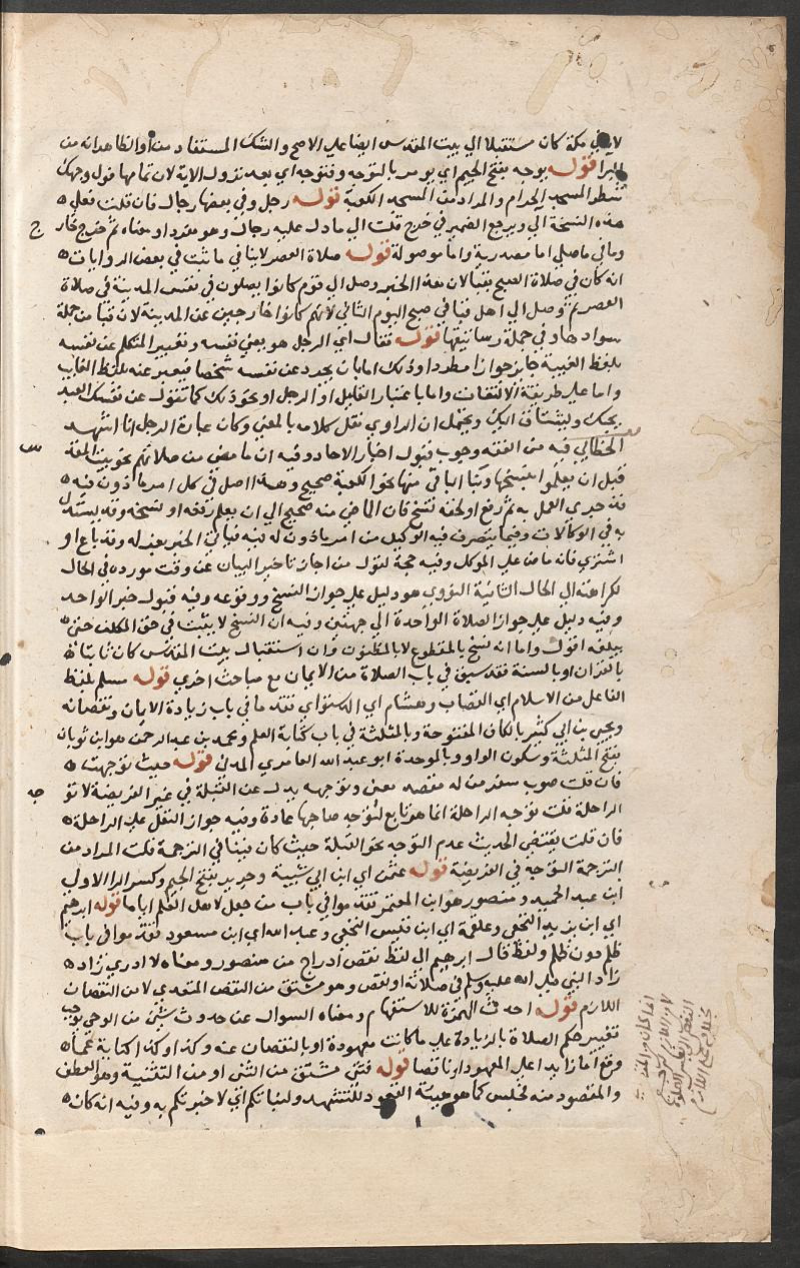 لانه في مكة كان مستقبلا الي بيت المقدس ايضا علي الاصح والشك المستفاد من او الظاهر انه من
البرا قوله يوجه بفتح الجيم اي يومر بالتوجه وفتوجه اي بعد نزول الاية لان تمامها فول وجهك
شطر المسجد الحرام والمراد من المسجد الكعبة قوله رجل وفي بعضها رجال فان قلت فعلي
هذه النسخة الي م يرجع الضمير في خرج قلت الي ما دل عليه رجال وهو مفرد او معناه ثم خرج خارج
وما في ما صلي اما مصدرية واما موصولة قوله صلاة العصر لا ينافي ما ثبت في بعض الروايات
انه كان في صلاة الصبح بقبا لان هذا الخبر وصل الي قوم كانوا يصلون في نفس المدينة في صلاة
العصر ثم وصل الي اهل قبا في صبح اليوم الثاني لانهم كانوا خارجين عن المدينة لان قبا من جملة
سوادها وفي جملة رساتيقها قوله فقال اي الرجل هو يعني نفسه وتعبير المتكلم عن نفسه
بلفظ الغيبة جايز جوازا مطردا وذلك اما بان يجرد عن نفسه شخصا فيعبر عنه بلفظ الغايب
واما علي طريقة الالتفات واما باعتبار القايل او الرجل او نحو ذلك كما تقول عن نفسك العبد
يحبك ويشتاق اليك ويحتمل ان الراوي نقل كلامه بالمعني وكان عبارة الرجل انا اشهد
الخطابي فيه من الفقه وجوب قبول اخبار الاحاد وفيه ان ما مضي من صلاتهم نحو بيت المقدس
قبل ان يعلموا بنسخها وبنا الباقي منها نحو الكعبة صحيح وهذا اصل في كل امر ماذون فيه
قد جري العمل به ثم رفع او لحقه نسخ فان الماضي منه صحيح الي ان يعلم رفعه او نسخه وقد يستدل
به في الوكالات وفيما يتصرف فيه الوكيل من امر ماذون له فيه فياتي الخبر بعزله وقد باع او
اشتري فانه ماض علي الموكل وفيه حجة لقول من اجاز تاخير البيان عن وقت مورده في الحال
الي الحال الثانية النووي هو دليل علي جواز النسخ ووقوعه وفيه قبول خبر الواحد
وفيه دليل علي جواز الصلاة الواحدة الي جهتين وفيه ان النسخ لا يثبت في حق المكلف حتي
يبلغه اقول واما انه نسخ بالمقطوع لا بالمظنون وان استقبال بيت المقدس كان ثابتا
بالقران او بالسنة فقد سبق في باب الصلاة من الايمان مع مباحث اخري قوله مسلم بلفظ
الفاعل من الاسلام اي القصاب وهشام اي الدستواي تقدما في باب زيادة الايمان ونقصانه
ويحيي بن ابي كثير بالكاف المفتوحة وبالمثلثة في باب كتابة العلم ومحمد بن عبد الرحمن هو ابن ثوبان
بفتح المثلثة وسكون الواو وبالموحدة ابو عبد الله العامري المدني قوله حيث توجهت
فان قلت صوب سفر من له مقصد معين وتوجهه بدل عن القبلة في غير الفريضة لا توجه
الراحلة قلت توجه الراحلة انما هو تابع لتوجه صاحبها عادة وفيه جواز النفل علي الراحلة
فان قلت يقتضي الحديث عدم التوجه نحو القبلة حيث كان فينافي الترجمة قلت المراد من
الترجمة التوجه في الفريضة قوله عثمن اي ابن ابي شيبة وجرير بفتح الجيم وكسر الرا الاولي
ابن عبد الحميد ومنصور هو ابن المعتمر تقدموا في باب من جعل لاهل العلم اياما قوله ابرهيم
اي ابن يزيد النخعي وعلقمة اي ابن قيس النخعي وعبد الله اي ابن مسعود تقدموا في باب
ظلم دون ظلم ولفظ قال ابرهيم الي لفظ نقص ادراج من منصور ومعناه لا ادري زاد
زاد النبي صلي الله عليه وسلم في صلاته او نقص وهو مشتق من النقص المتعدي لا من النقصان
اللازم قوله احدث الهمزة للاستفهام ومعناه السوال عن حدوث شيئ من الوحي يوجب
تغيير حكم الصلاة بالزيادة علي ما كانت معهودة او بالنقصان عنه وكذا وكذا كناية عما
وقع اما زايدا علي المعهود او ناقصا قوله فثني مشتق من الثني او من التثنية وهو العطف
والمقصود منه فجلس كما هو هيئة القعود للتشهد ولنباتكم اي لاخبرتكم به وفيه انه كان